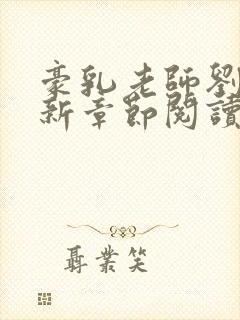 豪乳老師劉
新章節閱讀
聶業笑